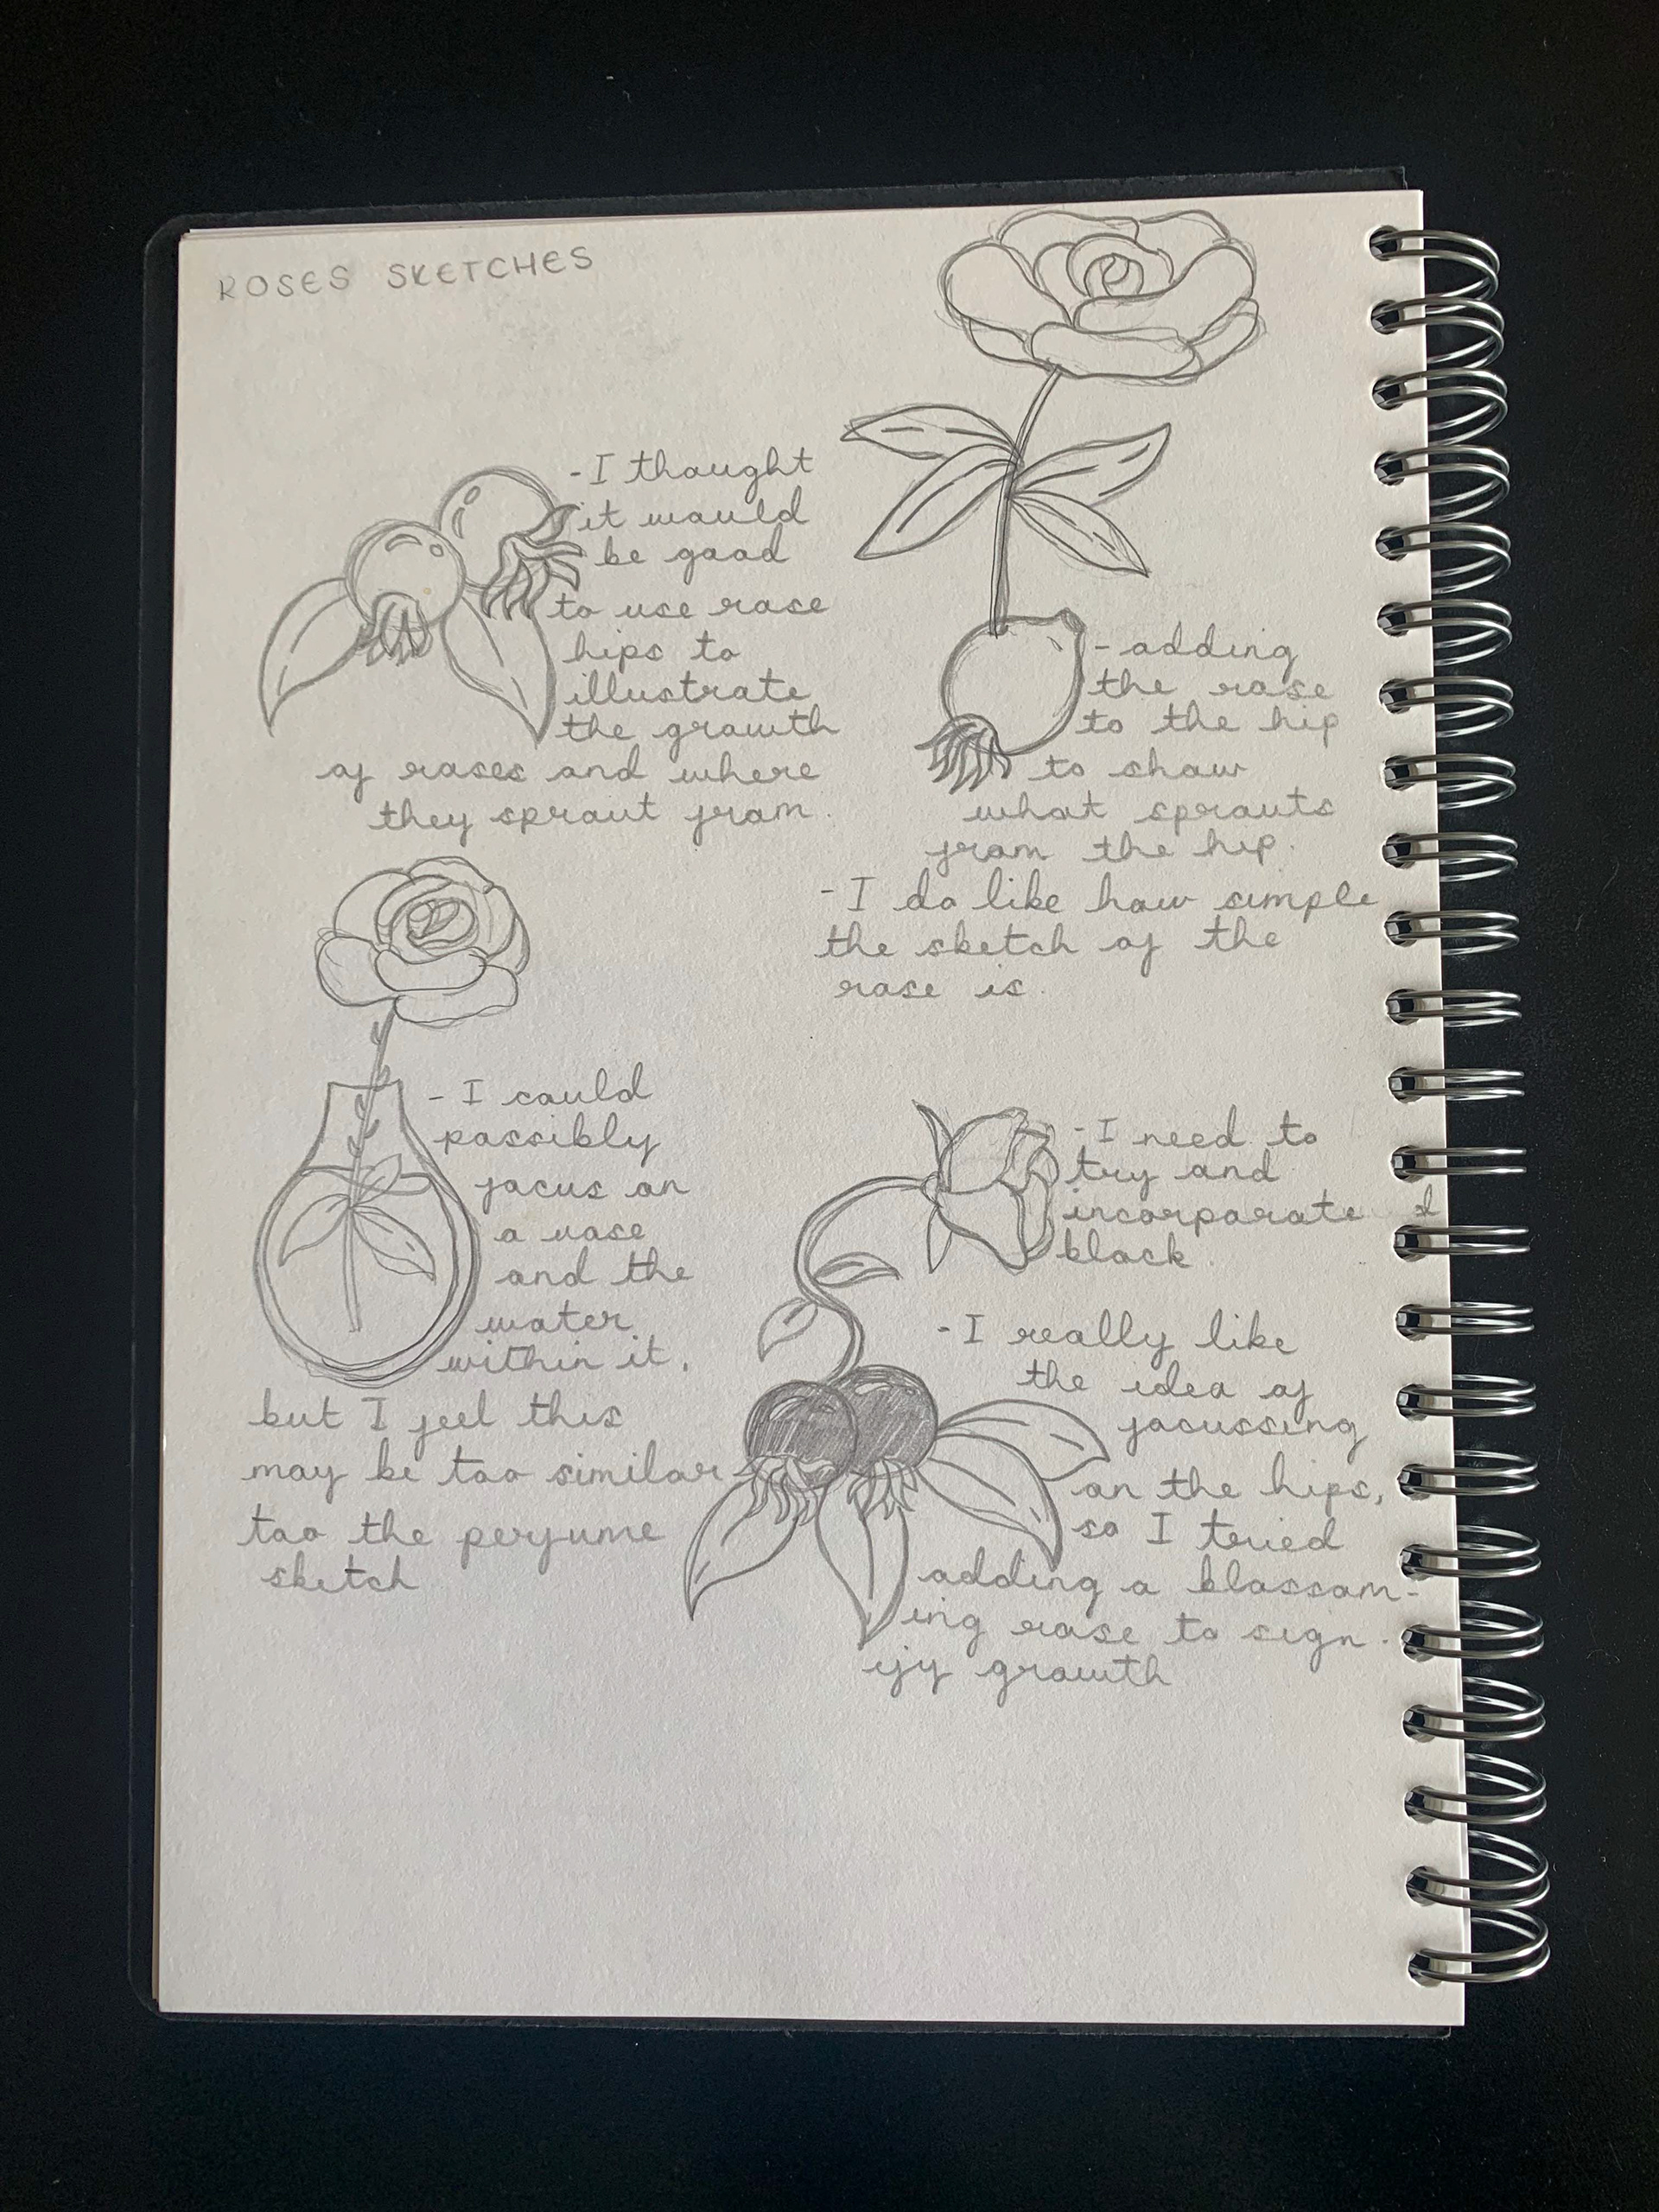 ROSES SKETCHES
-I thought
it would
be good
to use rose
hips to
illustrate
the growth
of roses and where
they sprout from.
-adding
the rose
to the hip
to show
what sprouts
from the hip.
-I do like how simple
the sketch of the
rose is.
-I could
possibly
focus on
a vase
and the
water
within it,
but I feel this
may be too similar
too the perfume
sketch
-I need to
try and
incorporate
black.
-I really like
the idea of
focussing
on the hips,
so I tried
adding a blossom-
ing rose to sign-
ify growth